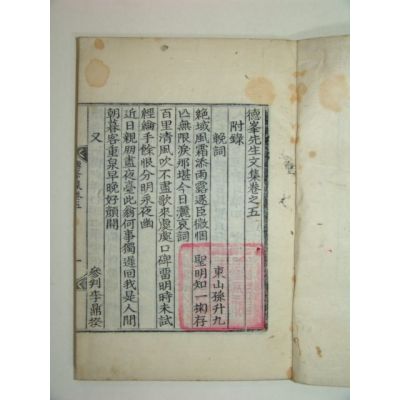 德峯先生文集卷之五
附錄
輓詞 東山孫升九
絶域風霜添雨露逐臣微悃 聖明知一掬存
亡無限淚那堪今日灑哀詞
百里淸風吹不盡歌來處處口碑留明時未試
經綸手餘恨分明乘夜幽
近日親朋盡夜臺此翁何事獨遲回我是人間
朝暮客重泉早晩好顔開
又 參判李鼎揆